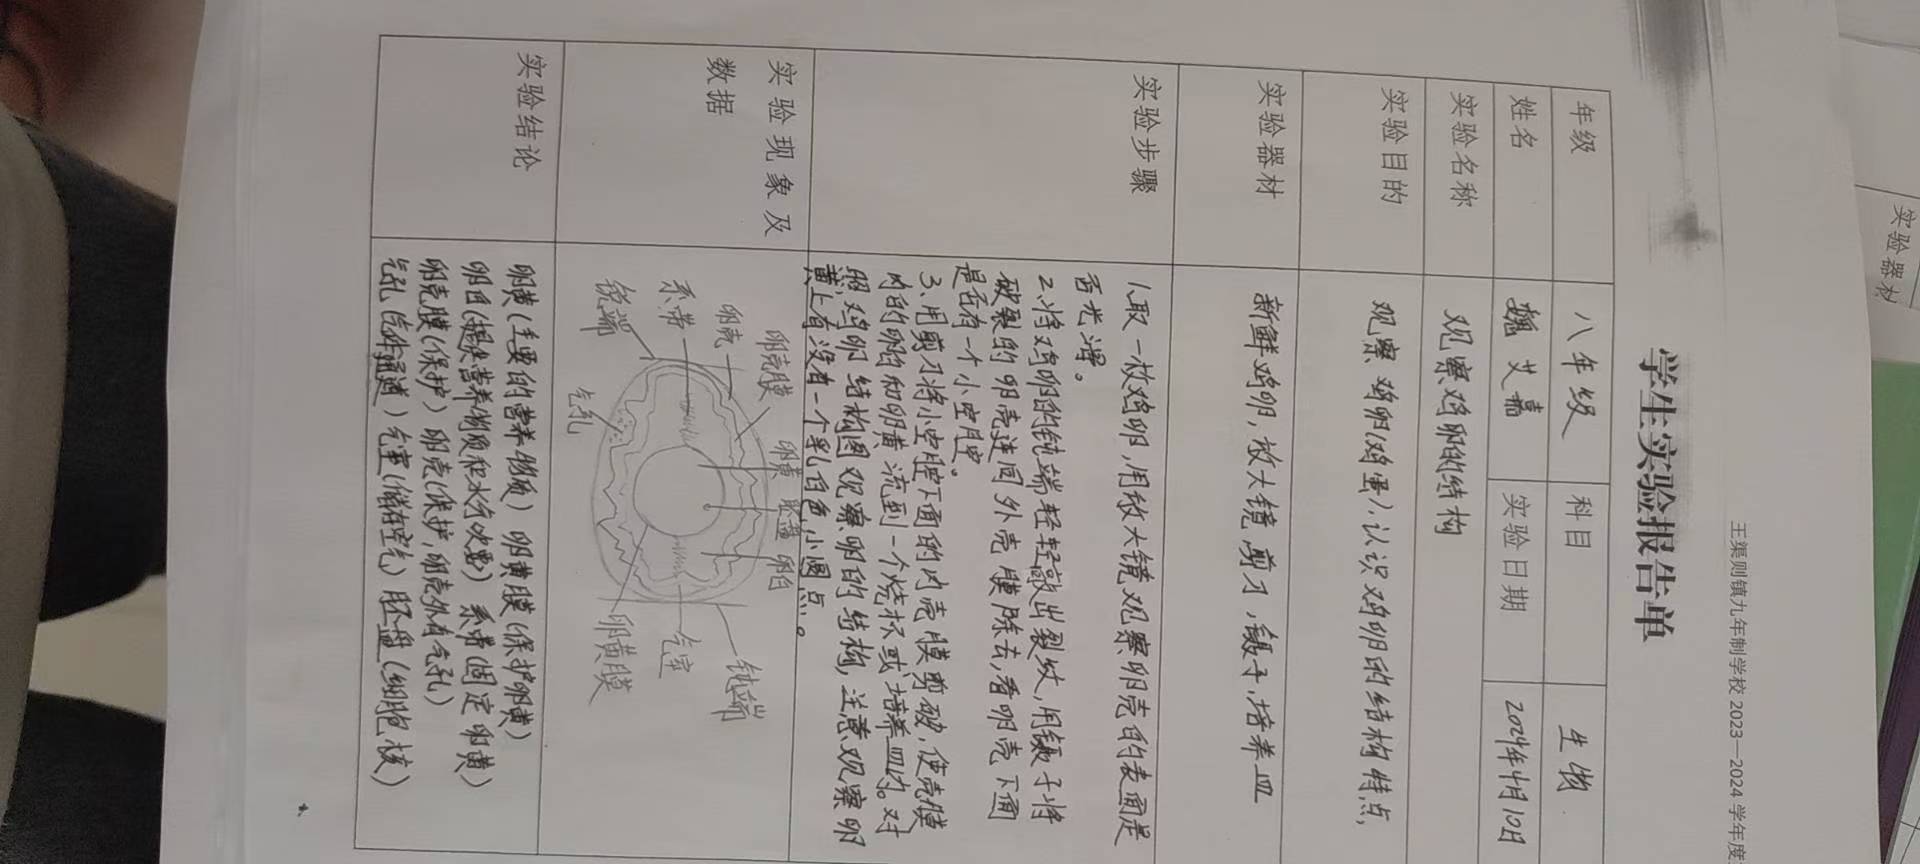 王渠则镇九年制学校 2023—2024 学年度
学生实验报告单
年级 八年级 科目 生物
姓名 魏艾嘉 实验日期 2024年4月10日
实验名称 观察鸡卵的结构
实验目的 观察鸡卵(鸡蛋),认识鸡卵的结构特点,
实验器材 新鲜鸡卵,放大镜,剪刀,镊子,培养皿
实验步骤
1.取一枚鸡卵,用放大镜观察卵壳的表面是
否光滑。
2.将鸡卵的钝端轻轻敲出裂纹,用镊子将
破裂的卵壳连同外壳膜除去,看卵壳下面
是否有一个小空腔。
3.用剪刀将小空腔下面的内壳膜剪破,使壳膜
内的卵白和卵黄流到一个烧杯或培养皿内。对
照鸡卵结构图观察卵的结构,注意观察卵
黄上有没有一个乳白色小圆点。
实验现象及
数据
卵壳膜
卵黄
胚盘
卵白
卵壳
系带
锐端
气孔
钝端
气室
卵黄膜
实验结论
卵黄(主要的营养物质) 卵黄膜(保护卵黄)
卵白(提供营养物质和水分 次要) 系带(固定卵黄)
卵壳膜(保护) 卵壳(保护,卵壳外有气孔)
气孔(气体通道) 气室(储存空气) 胚盘(细胞核)
实验器材